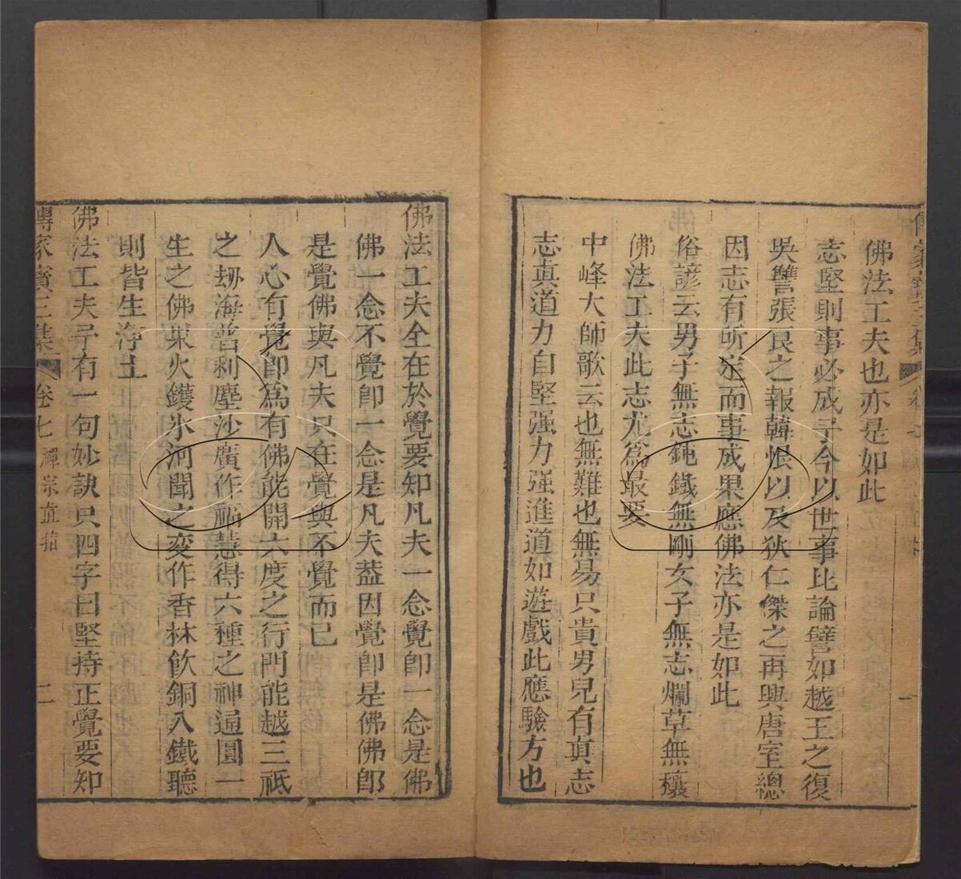 佛法工夫也亦是如此
志堅則事必成予今以世事比論譬如越王之復
吳讐張良之報韓恨以及狄仁傑之再興唐室總
因志有所定而事成果應佛法亦是如此
俗諺云男子無志鈍鐵無剛女子無志爛草無穰
佛法工夫此志尤為最要
中峰大師歌云也無難也無易只貴男兒有真志
志真道力自堅强力强進道如遊戲此應驗方也
佛法工夫全在於覺要知凡夫一念覺卽一念是佛
佛一念不覺卽一念是凡夫葢因覺卽是佛佛卽
是覺佛與凡夫只在覺與不覺而已
人心有覺卽為有佛能開六度之行門能越三祇
之刼海普利塵沙廣作福慧得六種之神通圓一
生之佛果火鑊氷河聞之变作香林飮銅入鐵聽
則皆生淨土
佛法工夫予有一句妙訣只四字曰堅持正覺要知
傳家寳三集 卷七 禪宗直指 二